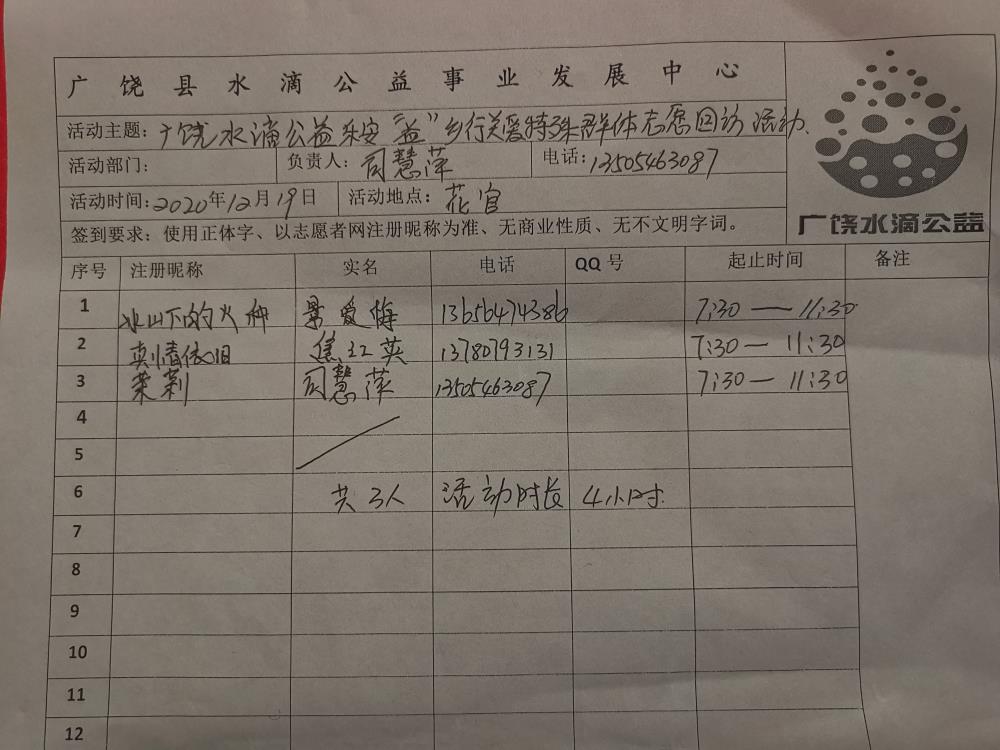 广饶县水滴公益事业发展中心
活动主题：广饶水滴公益乐安“益”乡行关爱特殊群体志愿回访活动.
活动部门： 负责人：司慧萍 电话：13505463087
活动时间：2020年12月19日 活动地点：花官
签到要求：使用正体字、以志愿者网注册昵称为准、无商业性质、无不文明字词。
广饶水滴公益
序号 注册昵称 实名 电话 QQ 号 起止时间 备注
1 冰山下的火种 景爱梅 13656474386 7:30 — 11:30
2 真情依旧 焦红英 13780793131 7:30 — 11:30
3 茉莉 司慧萍 13505463087 7:30 — 11:30
4
5
6 共3人 活动时长 4小时.
7
8
9
10
11
12